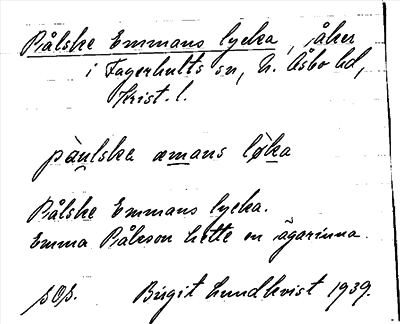 Pålske Emmans lycka, åker
i Fagerhults sn, N. Åsbo hd,
Krist. l.
pàu̯lska æmans lø̀ka
Pålske Emmans lycka.
Emma Pålsson hette en ägarinna.
Birgit Lundkvist 1939.